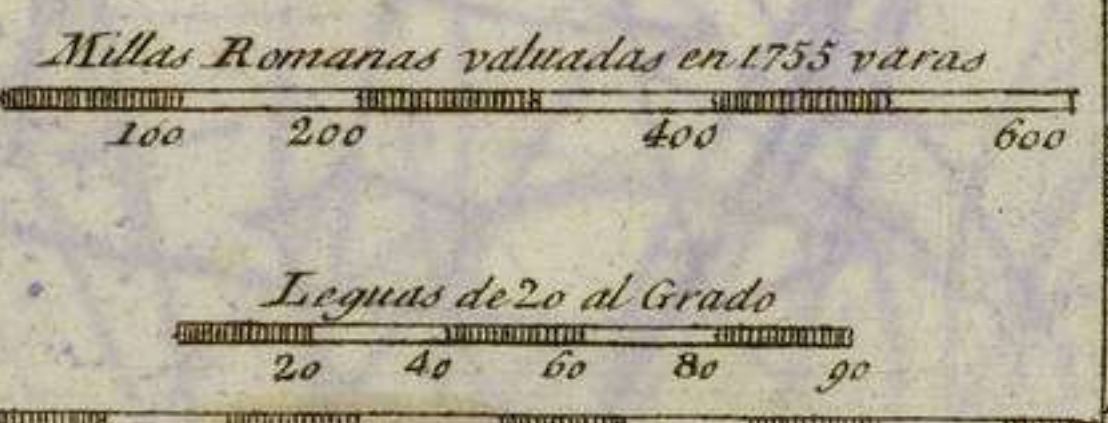 Millas Romanas valuadas en 1755 varas
100 200 400 600
Leguas de 20 al Grado
20 40 60 80 90